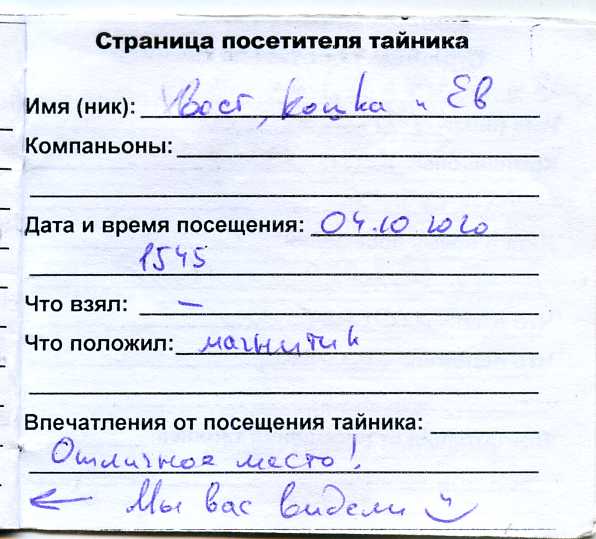 Страница посетителя тайника
Имя (ник): Хвост, кошка и Ев
Компаньоны:
Дата и время посещения: 04.10 2020
1545
Что взял: –
Что положил: магнитик
Впечатления от посещения тайника:
Отличное место!
← Мы вас видели